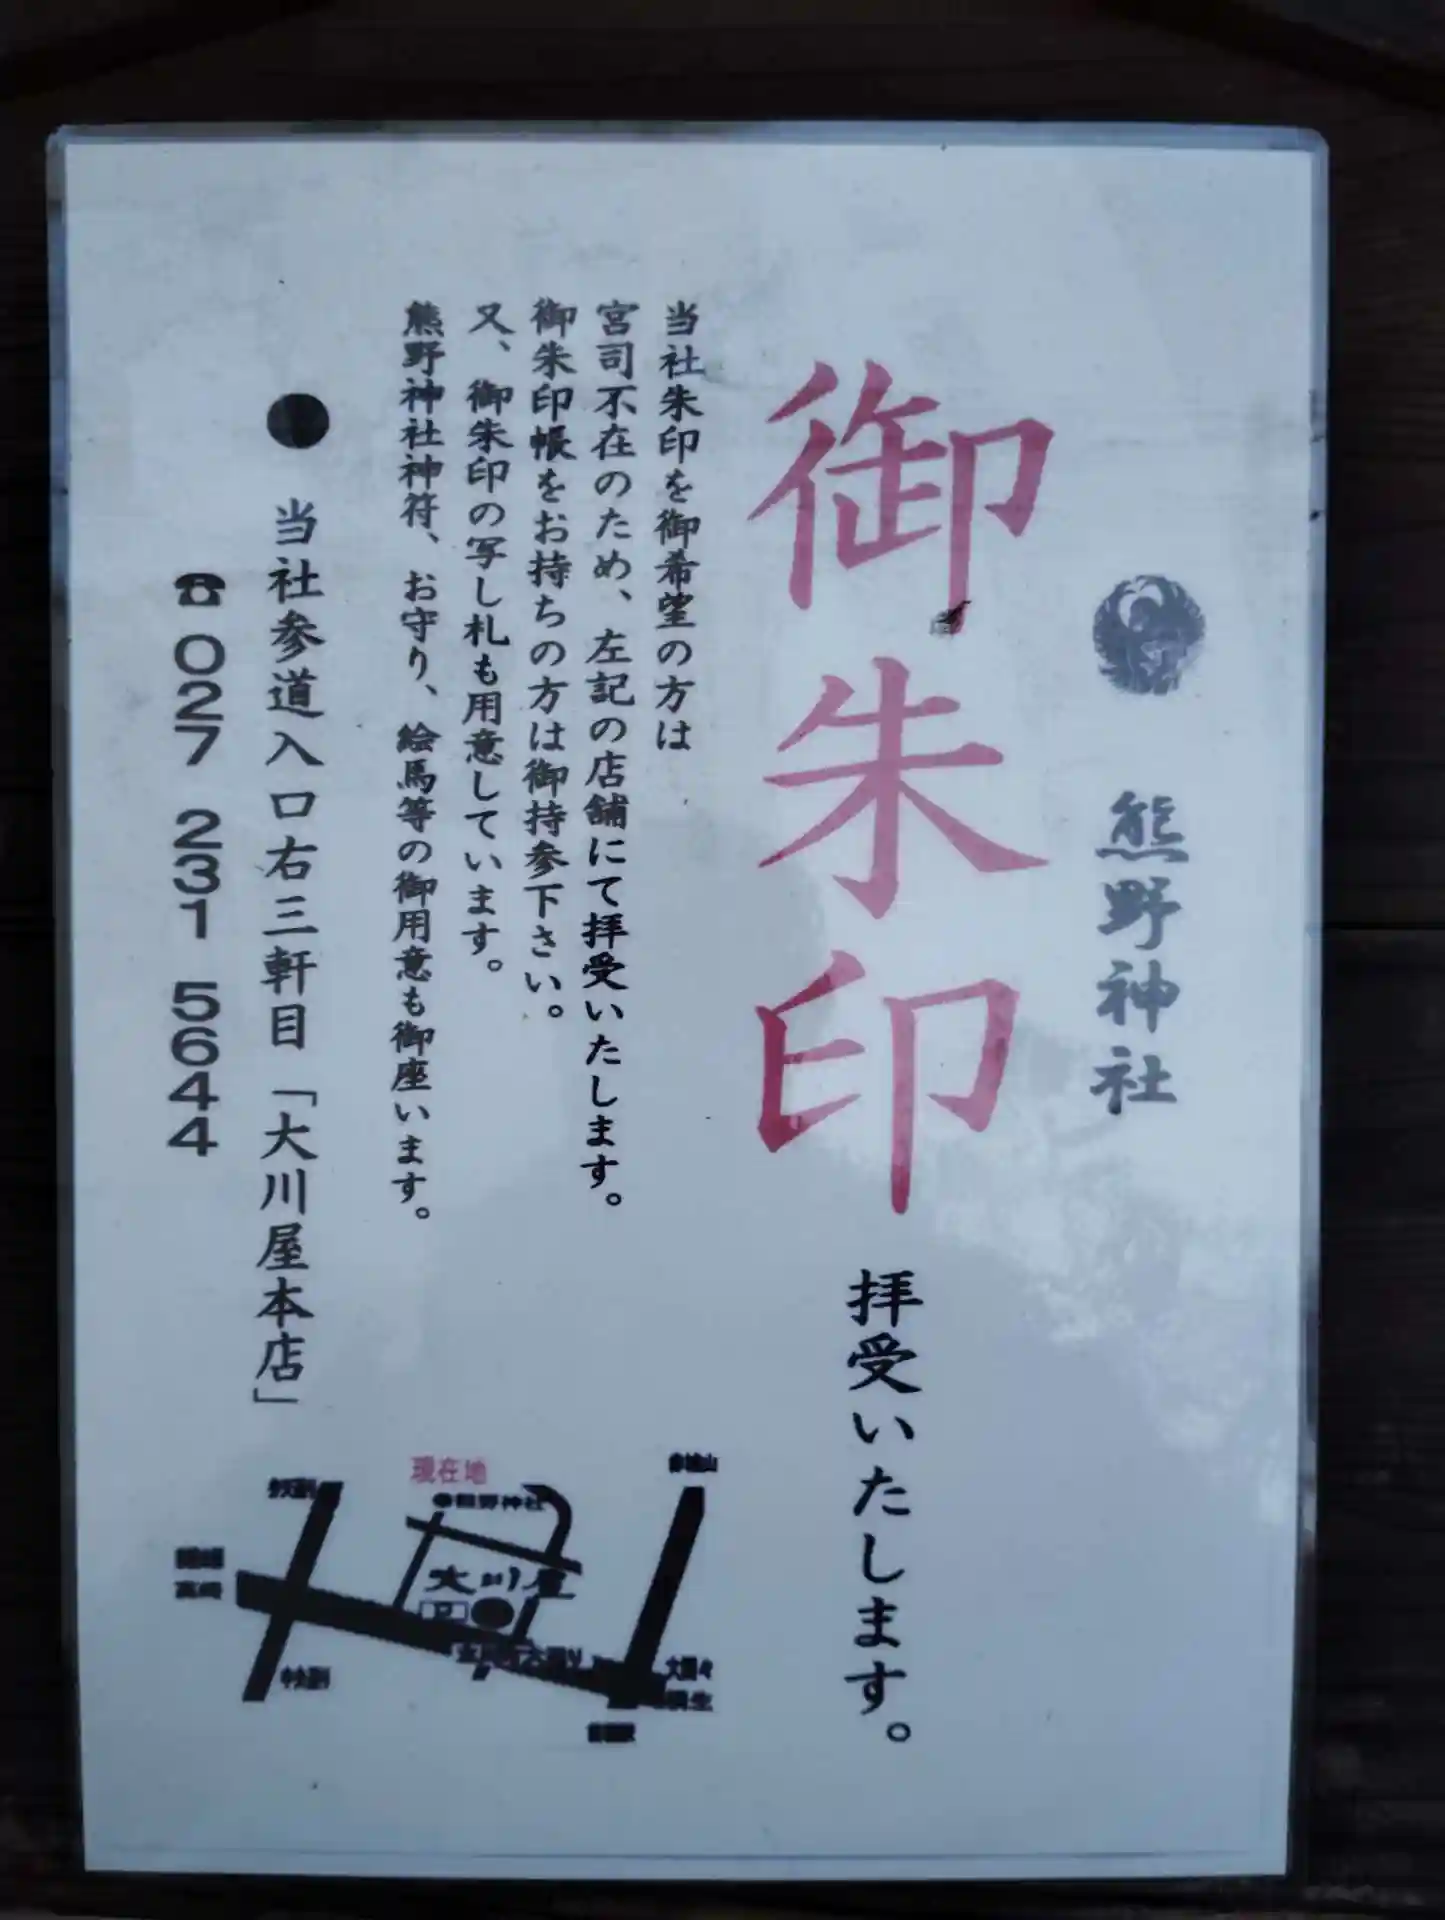 熊野神社
御朱印 拝受いたします。
当社朱印を御希望の方は
宮司不在のため、左記の店舗にて拝受いたします。
御朱印帳をお持ちの方は御持参下さい。
又、御朱印の写し札も用意しています。
熊野神社神符、お守り、絵馬等の御用意も御座います。
● 当社参道入口右三軒目「大川屋本店」
☎027 231 5644
現在地
●熊野神社
大川屋
P
高崎